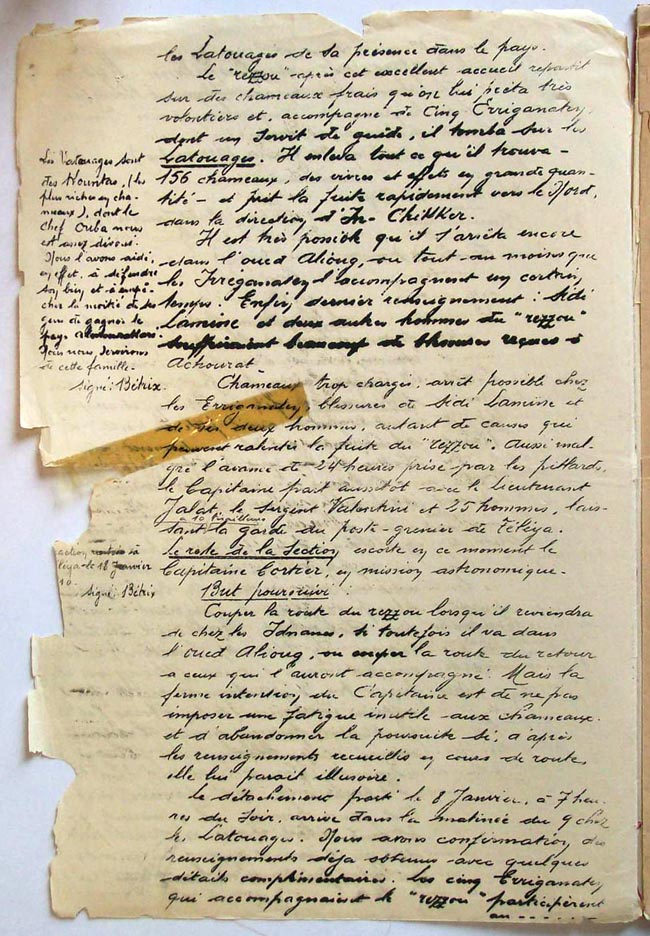 les Latouages de sa présence dans le pays.
Le "rezzou" après cet excellent accueil repartit
sur des chameaux frais qu'on lui prêta très
volontiers et, accompagné de Cinq Erriganaten,
dont un servit de guide, il tomba sur les
Latouages. Il enleva tout ce qu'il trouva -
156 chameaux, des vivres et effets en grande quan-
tité - et prit la fuite rapidement vers le Nord,
dans la direction d'In-Chikker.
Il est très possible qu'il s'arrêta encore
dans l'oued Alioug, ou tout au moins que
les Irréganaten l'accompagnent un certain
temps. Enfin, dernier renseignement : Sidi
Lamine et deux autres hommes du "rezzou"
souffriraient beaucoup de blessures reçues à
Achourat -
Chameaux trop chargés, arrêt possible chez
les Erriganaten, blessures de Sidi Lamine et
de ses deux hommes, autant de causes qui
peuvent ralentir la fuite du "rezzou". Aussi mal-
gré l'avance de 24 heures prise par les pillards,
le Capitaine part aussitôt avec le Lieutenant
Jalat, le sergent Valentini et 25 hommes, lais-
à 10 tirailleurs
sant la garde du poste-grenier de Téléya.
Le reste de la Section escorte en ce moment le
Capitaine Cortier, en mission astronomique.
But poursuivi :
Couper la route du rezzou lorsqu'il reviendra
de chez les Idnanes, si toutefois il va dans
l'oued Alioug, ou couper la route du retour
à ceux qui l'auront accompagné. Mais la
ferme intention du Capitaine est de ne pas
imposer une fatigue inutile aux chameaux
et d'abandonner la poursuite si, d'après
les renseignements recueillis en cours de route,
elle lui parait illusoire.
Le détachement parti le 8 Janvier, à 7 heu-
res du soir, arrive dans la matinée du 9 chez
les Latouages. Nous avons confirmation des
renseignements déjà obtenus avec quelques
détails complémentaires. Les cinq Erriganaten
qui accompagnaient le "rezzou" participèrent
au - - - - -
Les Latouages sont
des Kountas, (les
plus riches en cha-
meaux), dont le
chef Ouba nous
est assez dévoué.
Nous l'avons aidé,
en effet, à défendre
son bien et à empê-
cher la moitié de ses
gens de gagner le
pays
Nous nous servirons
de cette famille.
Signé : Bétrix.
action à
léya le 18 Janvier
10.
Signé : Bétrix